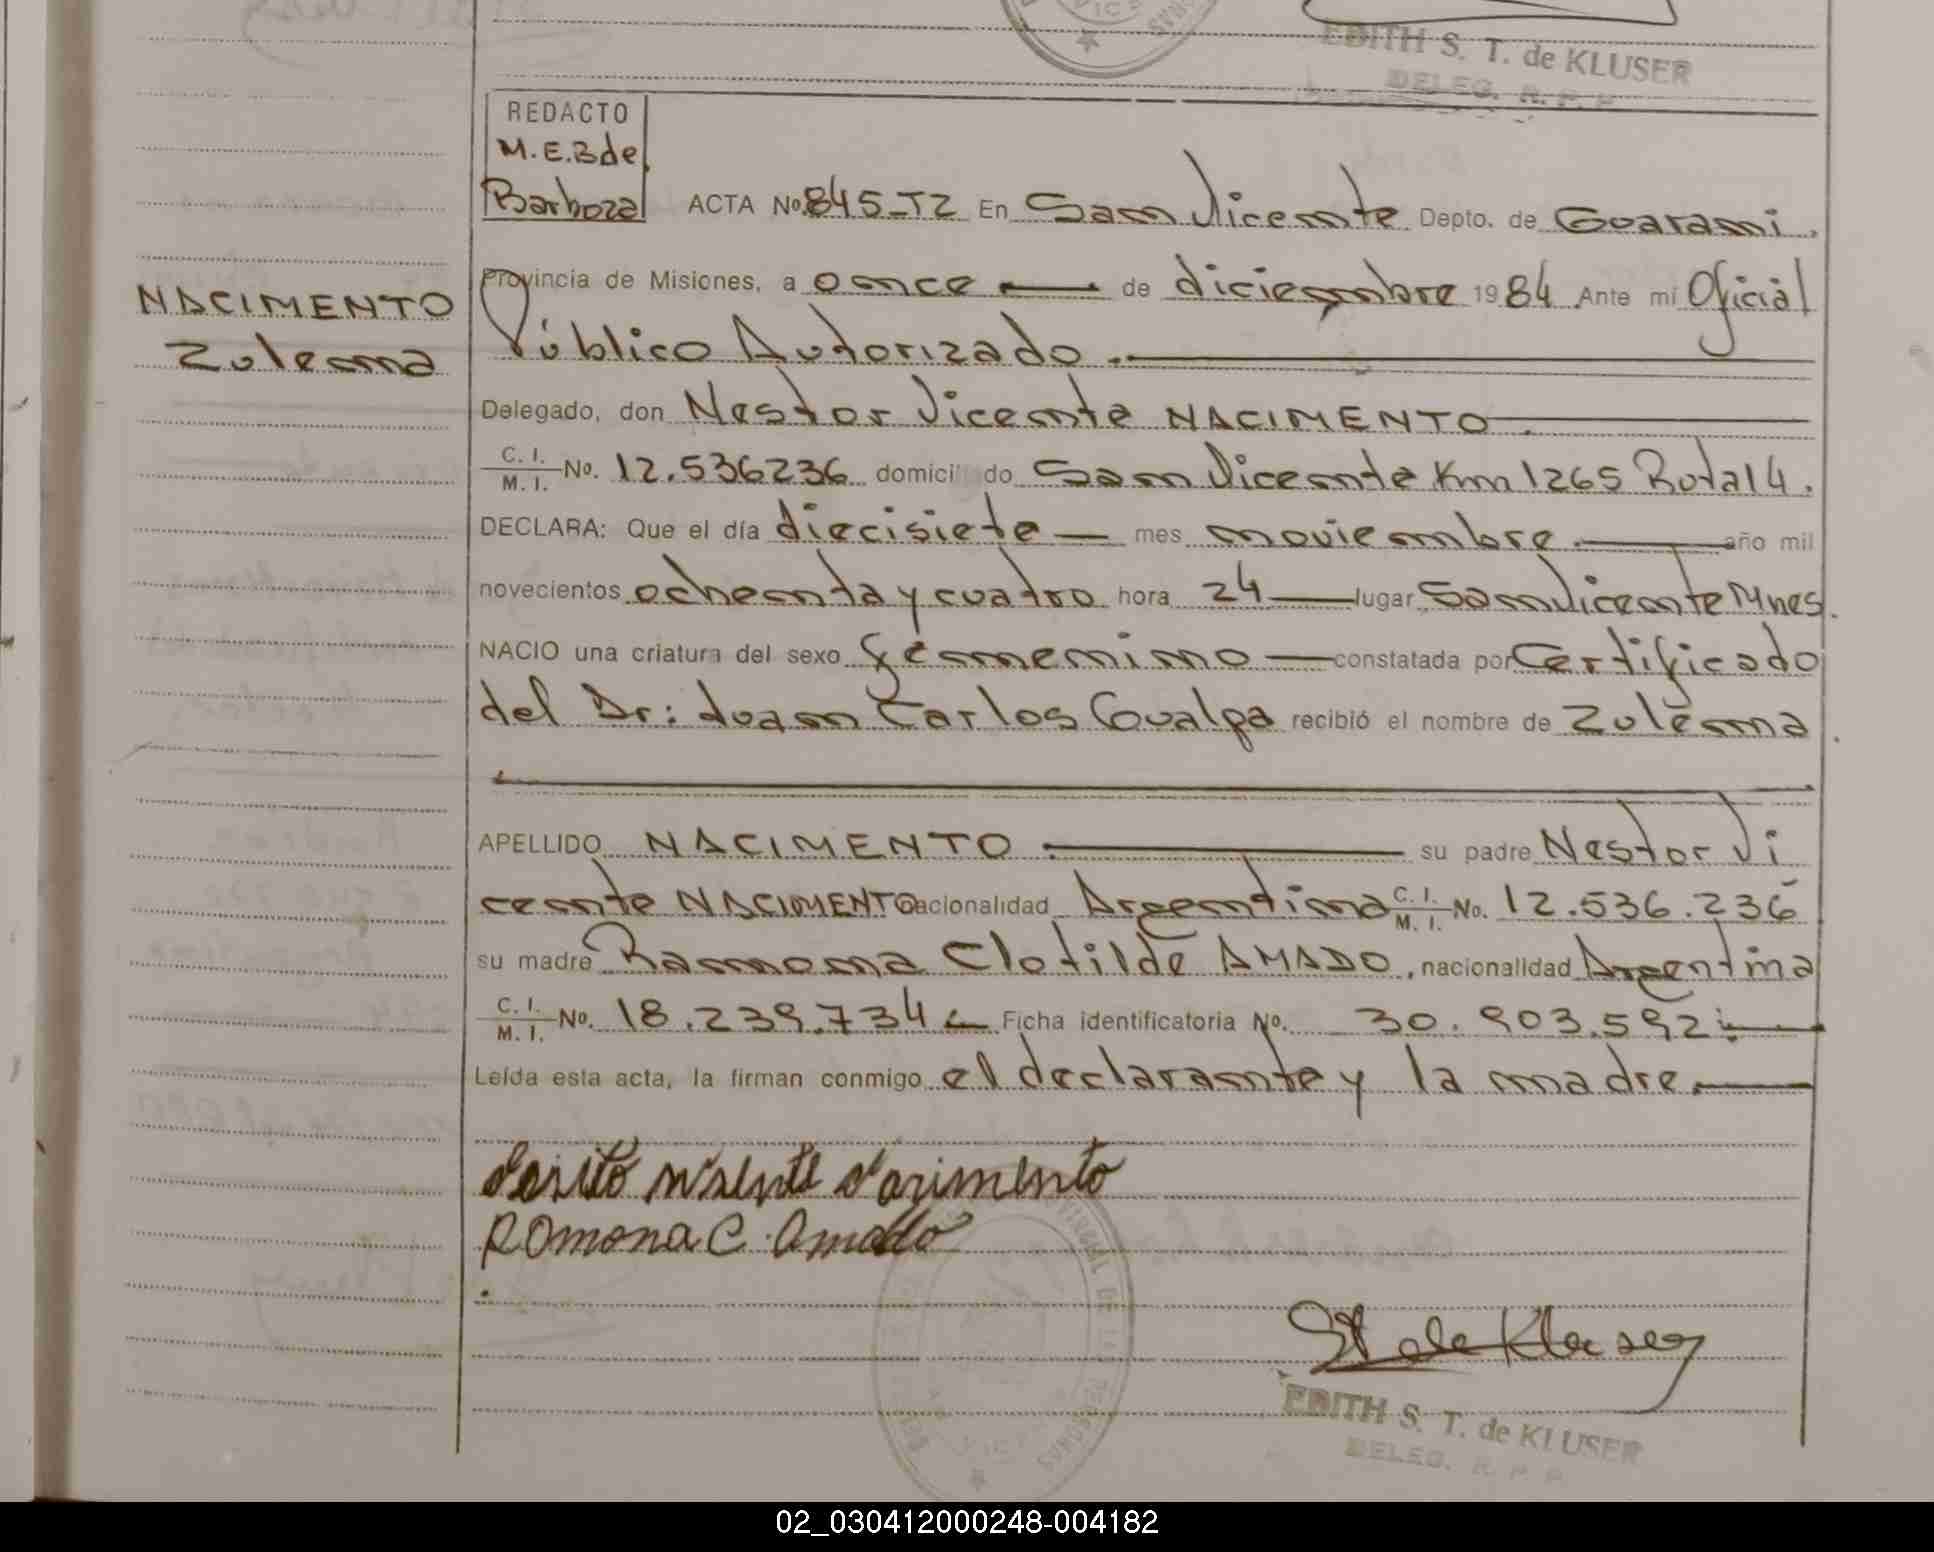 EDITH S. T. de KLUSER
DELEG. R. P. P.
REDACTO
M.E.B de
Barboza
ACTA No. 845-T2 En San Vicente Depto. de Guarani.
Provincia de Misiones, a once — de diciembre 1984. Ante mi Oficial
Público Autorizado.
NACIMENTO
Zulema
Delegado, don Nestor Vicente NACIMENTO.
C. I.
M. I. No. 12.536236 domiciliado San Vicente Km 1265 Ruta 14.
DECLARA: Que el día diecisiete — mes noviembre. — año mil
novecientos ochenta y cuatro hora 24 — lugar San Vicente Mnes.
NACIO una criatura del sexo femenino — constatada por Certificado
del Dr: Juan Carlos Gualpa recibió el nombre de Zulema.
APELLIDO NACIMENTO. — su padre Nestor Vi
cente NACIMENTO nacionalidad Argentina C. I.
M. I. No. 12.536.236
su madre Ramona Clotilde AMADO, nacionalidad Argentina
C. I.
M. I. No. 18.239.734 — Ficha identificatoria No. 30.903.592. —
Leída esta acta, la firman conmigo el declarante y la madre. —
Ramona C. Amado
St de Kluser
EDITH S. T. de KLUSER
DELEG. R. P. P.
02_030412000248-004182